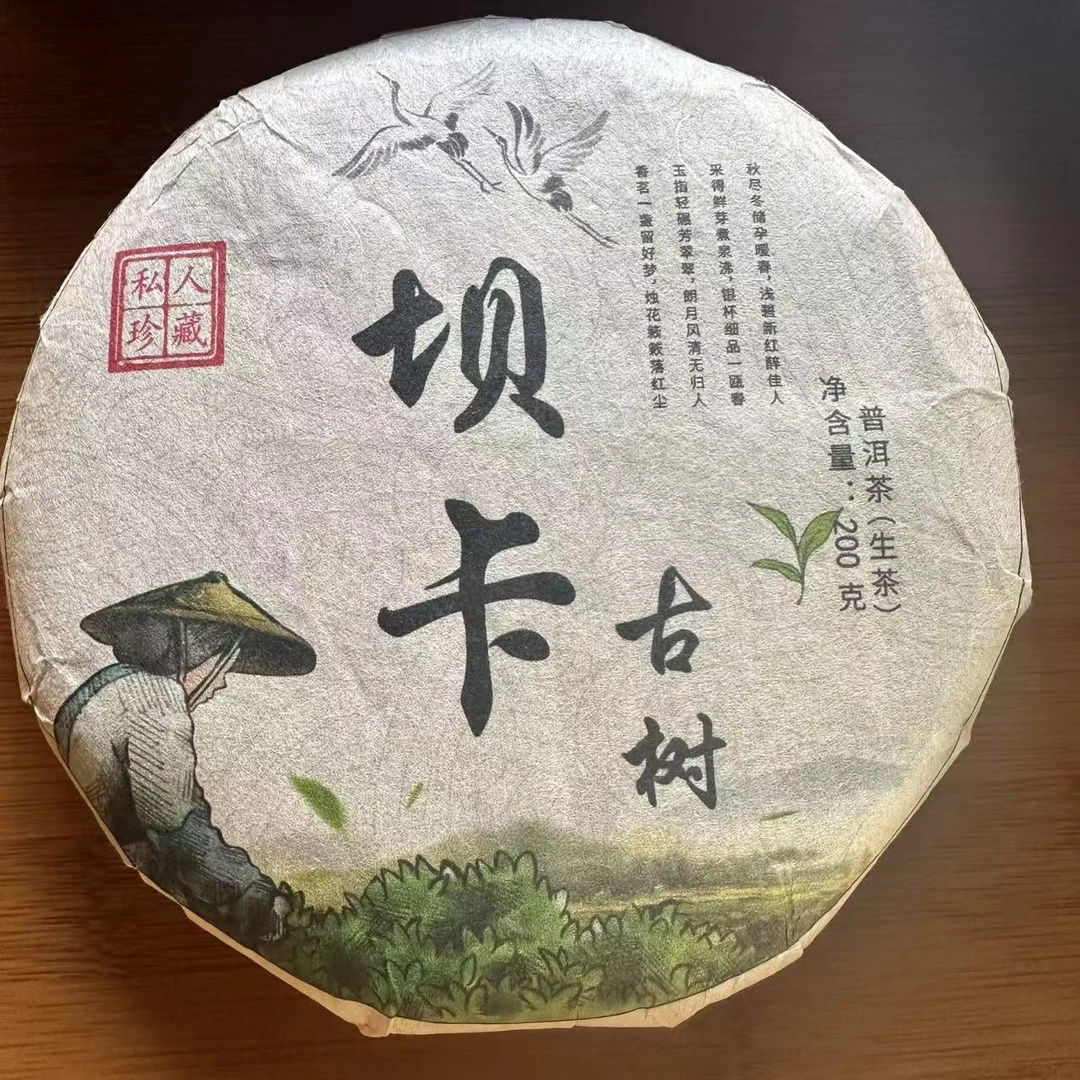 私人
珍藏
坝卡
古树
秋尽冬储孕暖春，浅碧新红醉佳人
采得鲜芽煮泉沸，银杯细品一瓯
玉指轻碾芳翠翠，朗月风清无归人
香茗一盏留好梦，烛花簌簌落红尘
普洱茶（生茶）
净含量：200 克